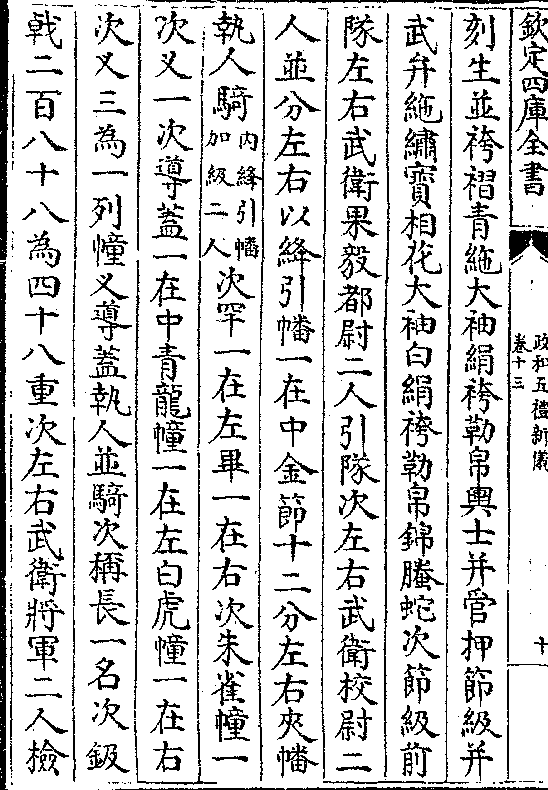 欽定四庫全書
政和五禮新儀
卷十三
十
刻生並袴褶青絁大袖絹袴勒帛輿士并管押節級并
武弁絁繡寳相花大袖白絹袴勒帛錦螣蛇次節級前
隊左右武衛果毅都尉二人引隊次左右武衛校尉二
人並分左右以絳引幡一在中金節十二分左右夾幡
執人騎内絳引幡加級二人次罕一在左畢一在右次朱雀幢一
次叉一次導蓋一在中青龍幢一在左白虎幢一在右
次叉三為一列幢叉導蓋執人並騎次稱長一名次鈒
戟二百八十八為四十八重次左右武衛將軍二人檢